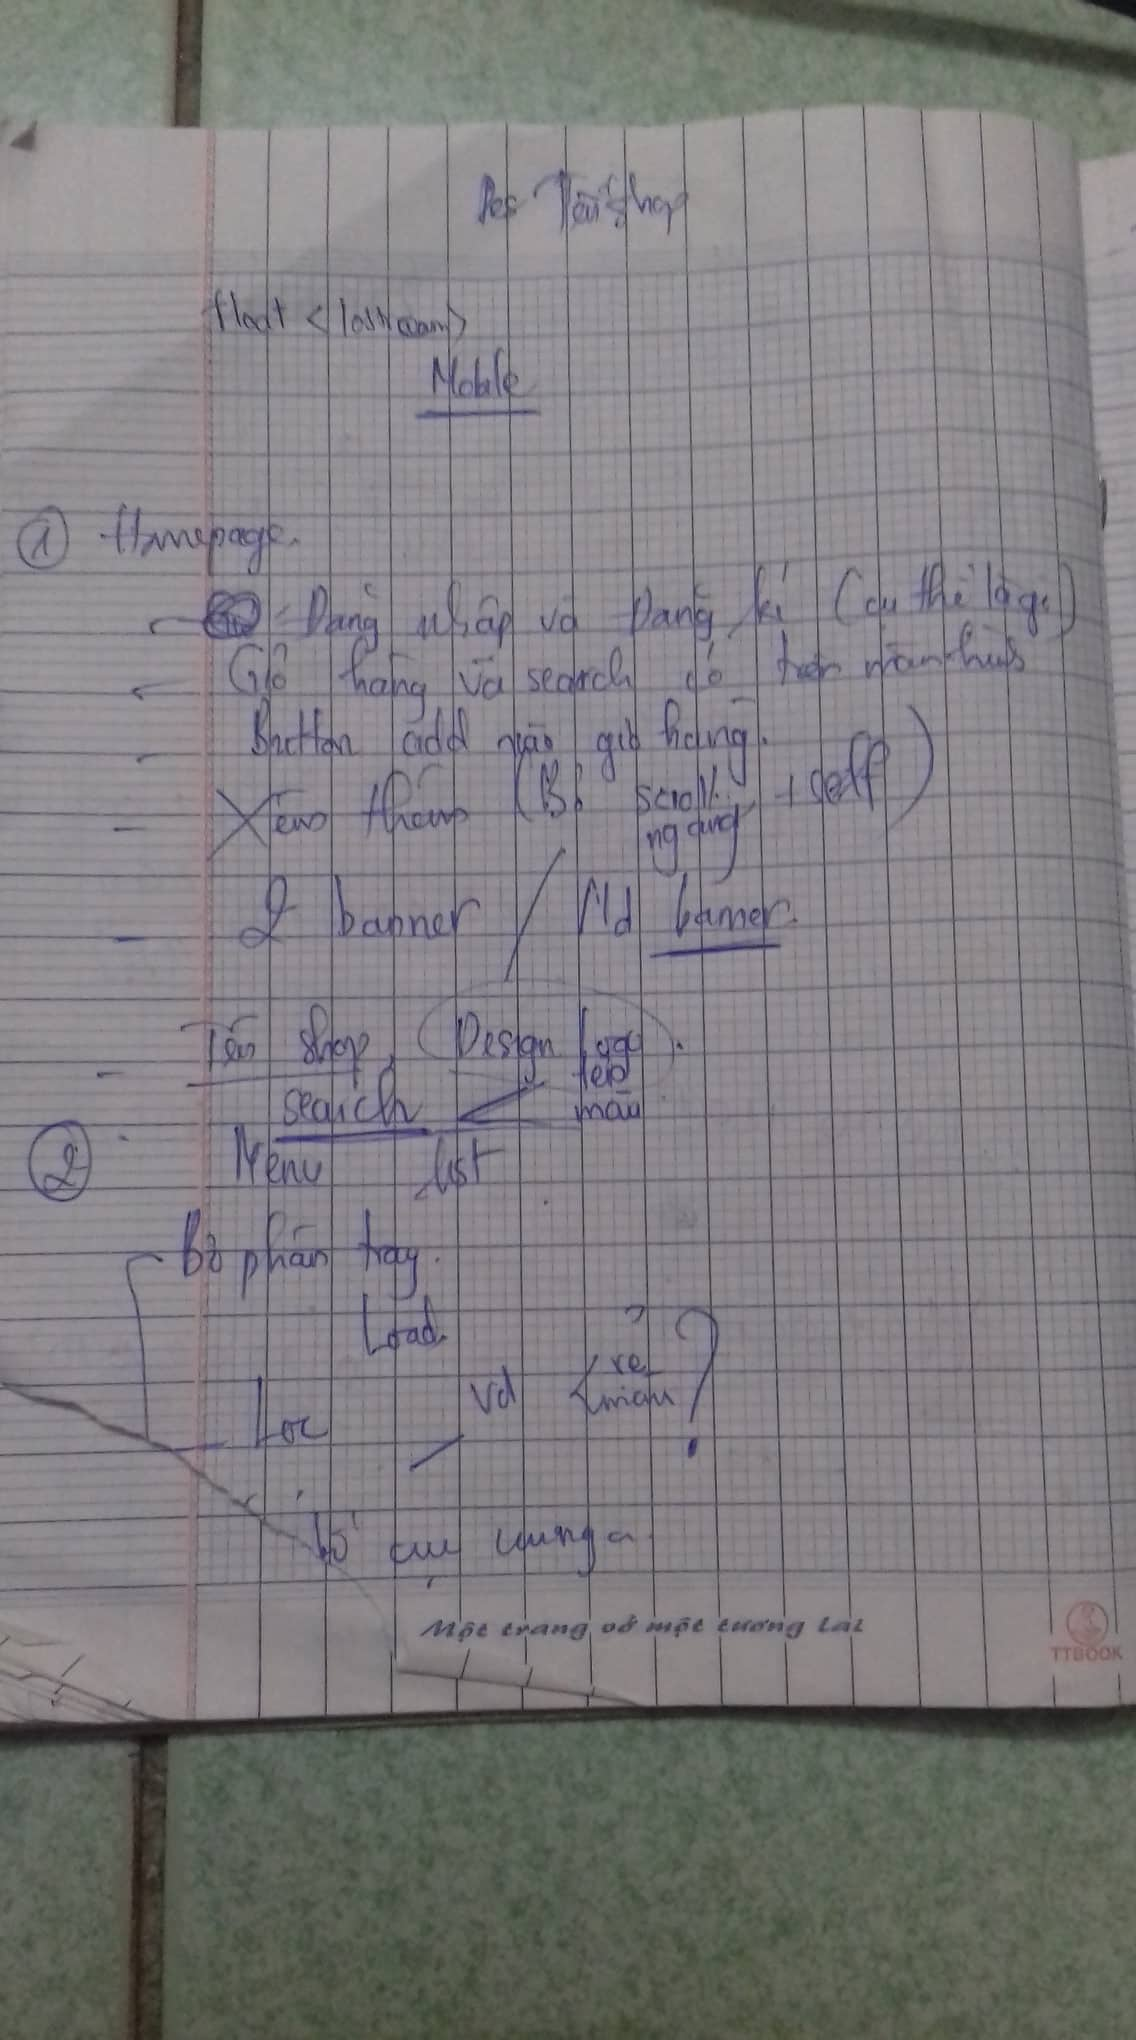 Tên shop
float <lostream>
Mobile
① Homepage.
- Đăng nhập và Đăng kí (cụ thể là gì)
- Giỏ hàng và search có trên màn hình
- Button add vào giỏ hàng.
- Xem thêm (Bị scroll ngang + self)
- 2 banner / Md banner.
- Tên shop, Design Logo
tẹp
search màu
② Menu list
Bỏ phân tray.
Load
- Lọc vd rẻ màu ?
bố cục chung
Một trang vở một tương lai
TTBOOK